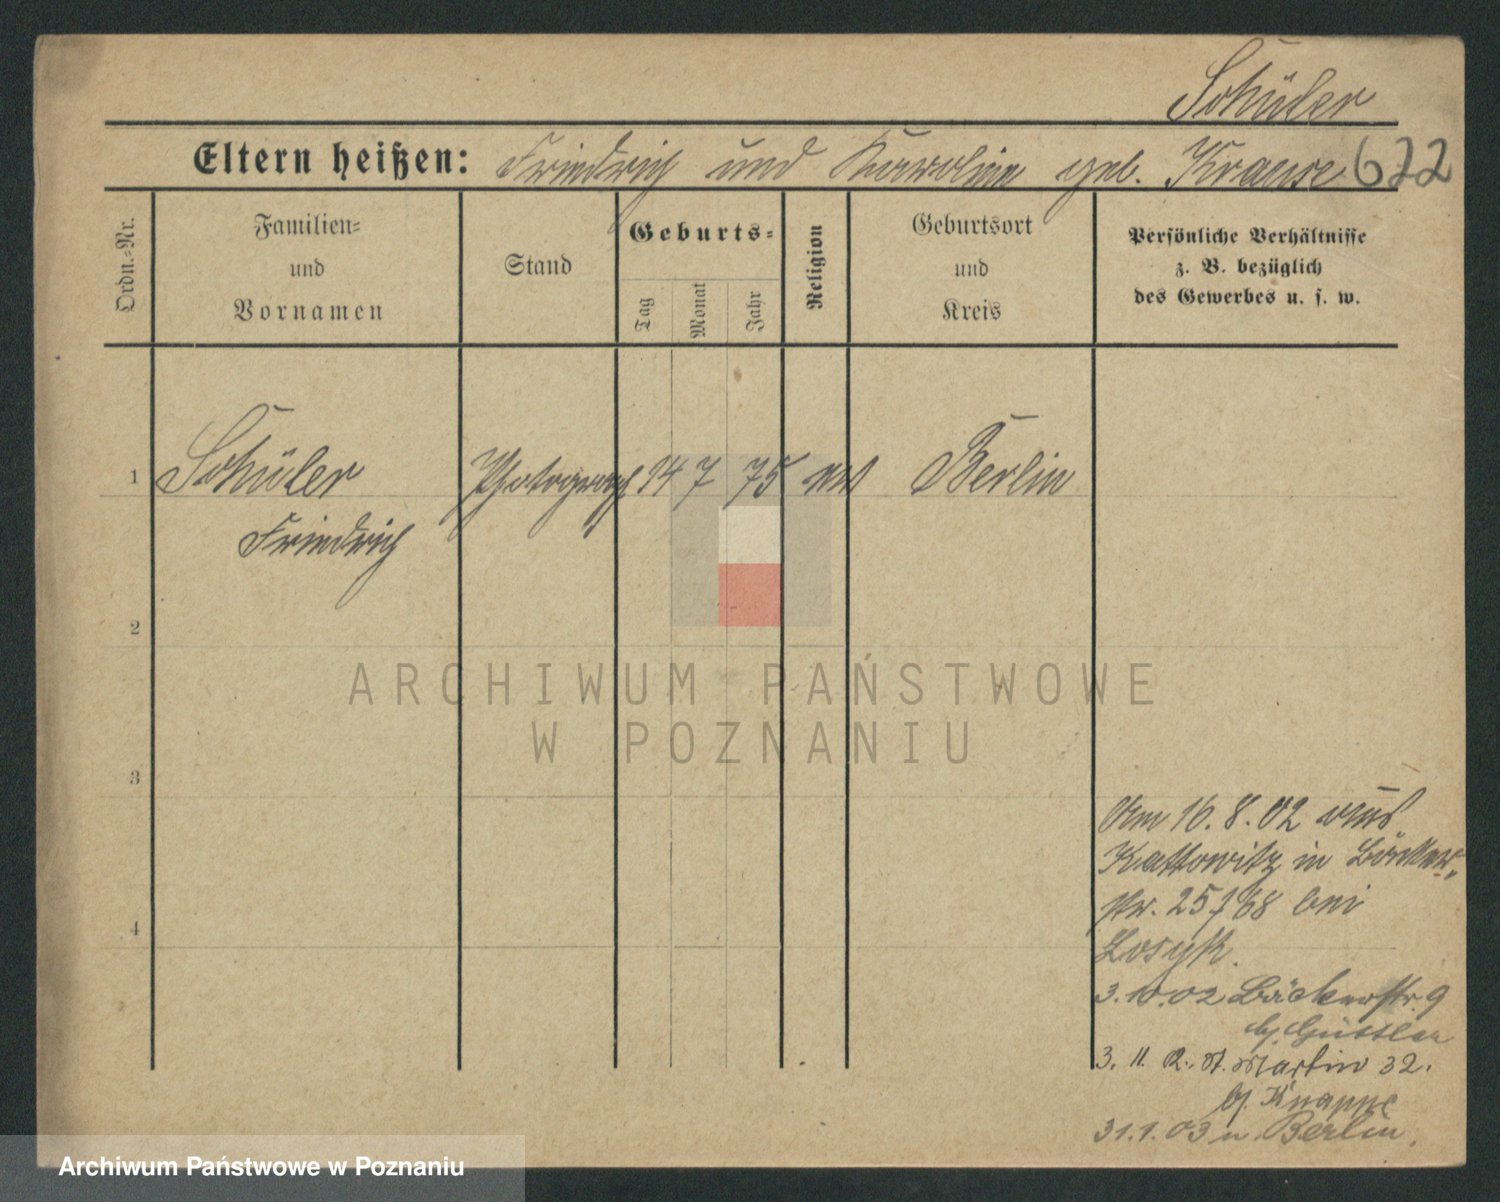 Schüler
Eltern heißen: Friedrich und Karoline geb. Krause 622
Ordn.-Nr.
Familien-
und
Vornamen
Stand
Geburts-
Tag
Monat
Jahr
Religion
Geburtsort
und
Kreis
Persönliche Verhältnisse
z. B. bezüglich
des Gewerbes u. s. w.
1 Schüler Photograph 14 7 75 Berlin
Friedrich
2
ARCHIWUM PAŃSTWOWE
W POZNANIU
3
Am 16.8.02 aus
Kattowitz in Bäcker-
str. 25 bei
4
3.10.02 Bäckerstr. 9
3. 11. St. Martin 32.
bj. Knappe
31.1.03 n. Berlin.
Archiwum Państwowe w Poznaniu